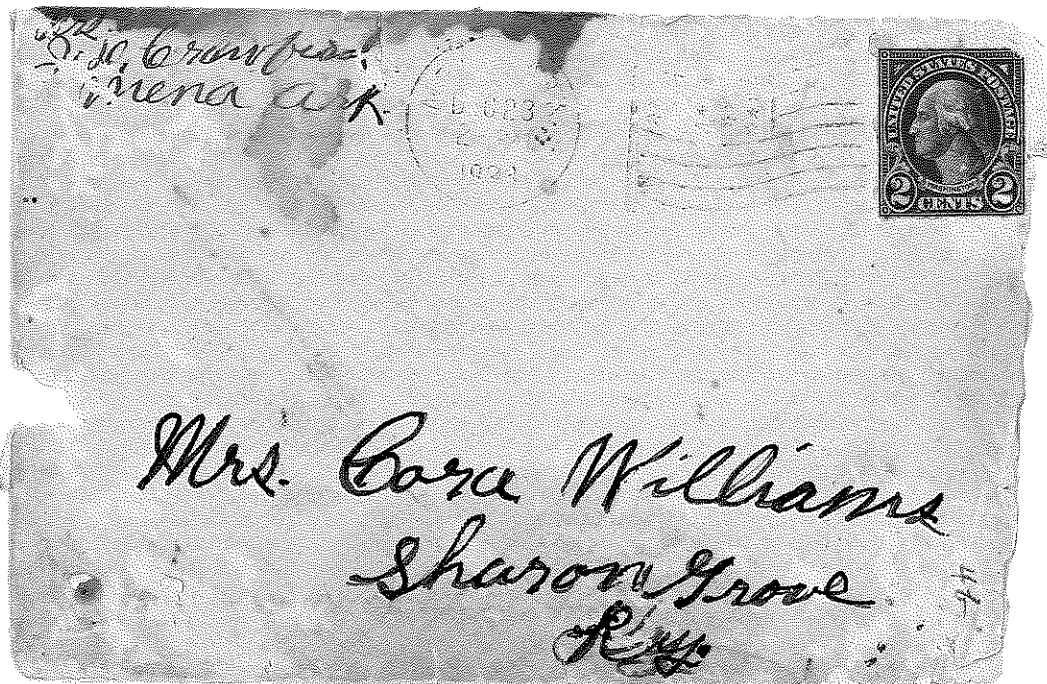 Crawford,
Mena Ark.
UNITED STATES POSTAGE
WASHINGTON
2 CENTS 2
Mrs. Cora Williams
Sharon Grove
Ky.